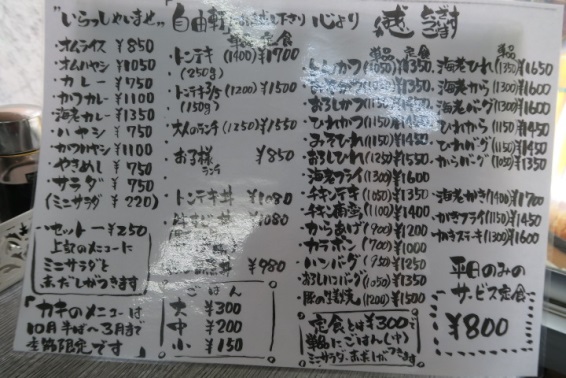 "いらっしゃいませ" 「自由軒」にお越し下さり 心より 感謝
・オムライス ¥850
・オムハヤシ ¥1050
・カレー ¥750
・カツカレー ¥1100
・海老カレー ¥1350
・ハヤシ ¥750
・カツハヤシ ¥1100
・やきめし ¥750
・サラダ ¥750
(ミニサラダ ¥220)
・セット ¥250
上記のメニューに
ミニサラダと
赤だしがつきます
「カキのメニューは
10月半ば〜3月まで
季節限定です」
単品 定食
・トンテキ (1400) ¥1700
(250g)
・トンテキ (1200) ¥1500
(150g)
・大人のランチ (1250) ¥1550
・お子様ランチ ¥850
・トンテキ丼 ¥1080
¥1080
丼 ¥980
ごはん
大 ¥300
中 ¥200
小 ¥150
単品 定食
・とんかつ (1050) ¥1350
¥1350
・おろしかつ ¥1450
・ひれかつ (1150) ¥1450
・みそひれ (1150) ¥1450
・おろしひれ (1250) ¥1550
・海老フライ (1300) ¥1600
・チキンテキ (1050) ¥1350
・チキン南蛮 (1100) ¥1400
・からあげ (900) ¥1200
・カラポン (700) ¥1000
・ハンバーグ (950) ¥1250
・おろしハンバーグ (1050) ¥1350
・豚の生姜焼 (1200) ¥1500
定食とは¥300で
単品にごはん(中)
ミニサラダ・お赤だしがつきます
単品
・海老ひれ (1350) ¥1650
・海老から (1300) ¥1600
・海老バーグ (1300) ¥1600
・ひれから (1150) ¥1450
・ひれバーグ (1150) ¥1450
・からバーグ (1050) ¥1350
・海老かき (1400) ¥1700
・かきフライ (1150) ¥1450
・かきステーキ (1300) ¥1600
平日のみの
サービス定食
¥800